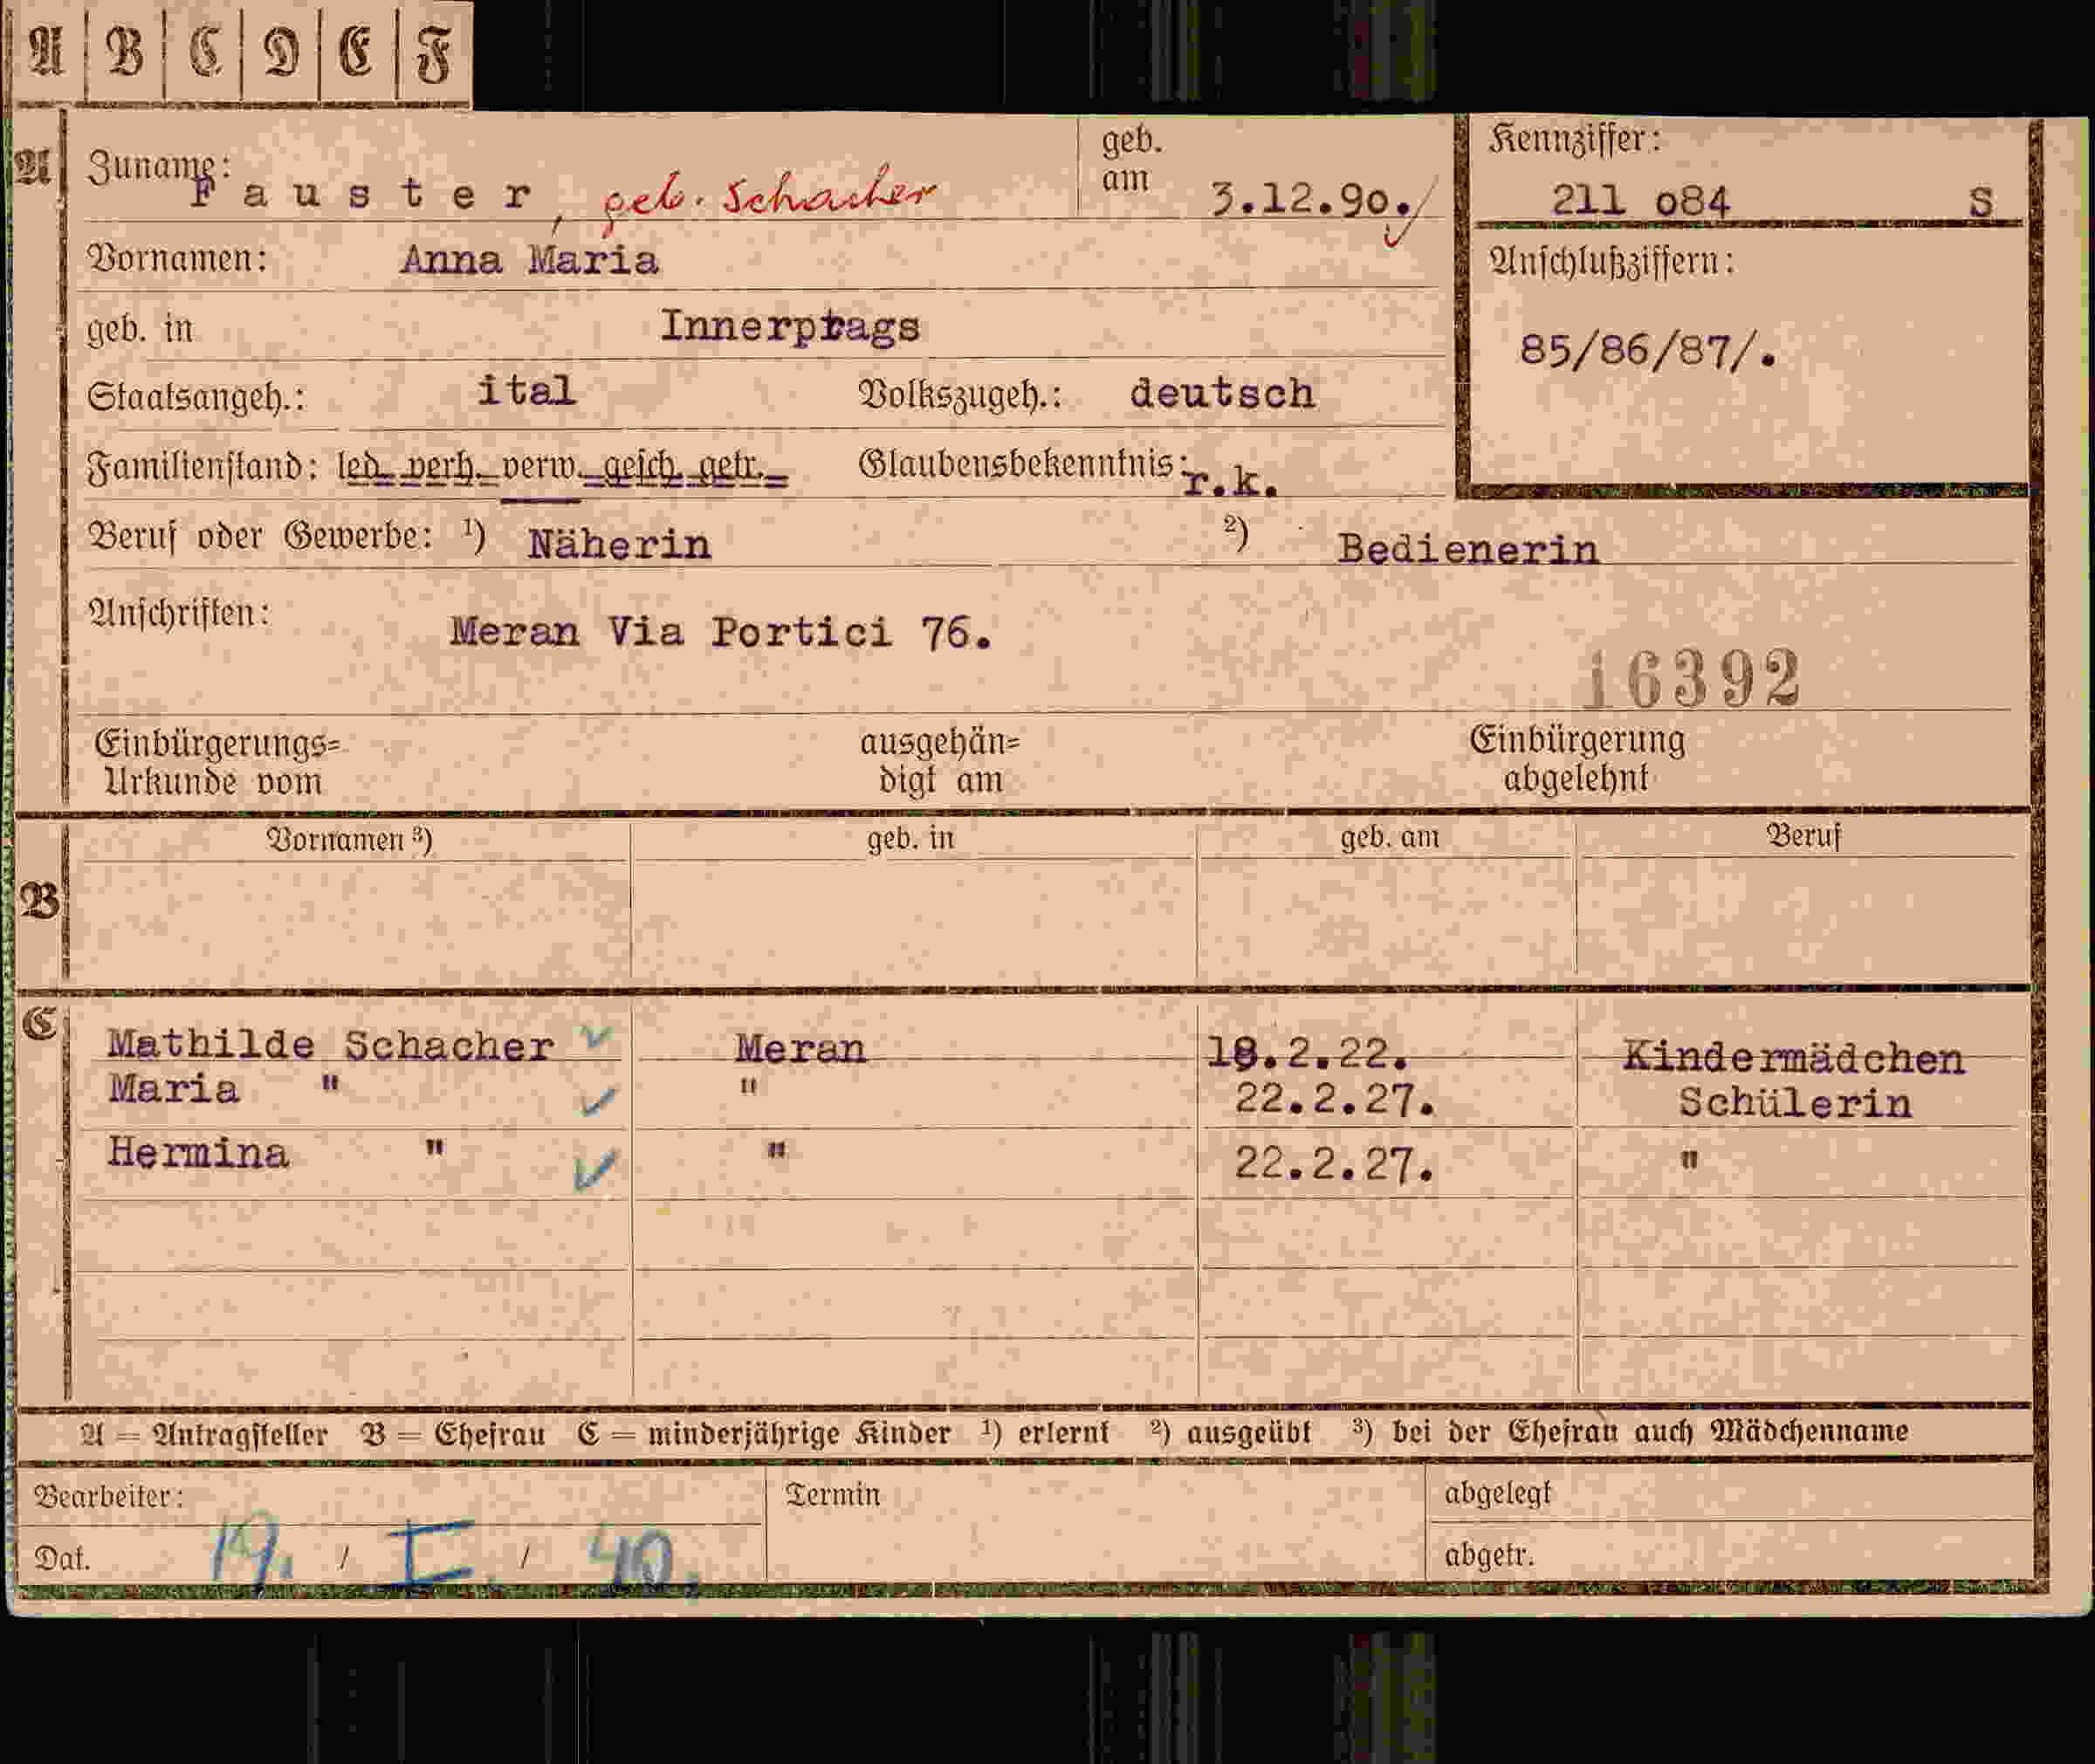 A B C D E F
A Zuname: Fauster, geb. Schacher geb. am 3.12.90. Kennziffer: 211 o84 S
Vornamen: Anna Maria Anschlußziffern:
geb. in Innerprags 85/86/87/.
Staatsangeh.: ital Volkszugeh.: deutsch
Familienstand: led. verh. verw. gesch. getr. Glaubensbekenntnis: r.k.
Beruf oder Gewerbe: ¹) Näherin ²) Bedienerin
Anschriften: Meran Via Portici 76.
16392
Einbürgerungs= Urkunde vom ausgehän= digt am Einbürgerung abgelehnt
Vornamen ³) geb. in geb. am Beruf
B
C
Mathilde Schacher Meran 18.2.22. Kindermädchen
Maria " " 22.2.27. Schülerin
Hermina " " 22.2.27. "
A = Antragsteller B = Ehefrau C = minderjährige Kinder ¹) erlernt ²) ausgeübt ³) bei der Ehefrau auch Mädchenname
Bearbeiter: Termin abgelegt
Dat. 19. / I. / 40. abgetr.